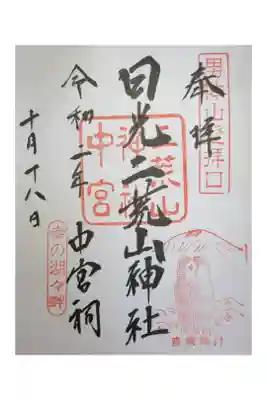 奉拝
男体山登拝口
日光二荒山神社
二荒山
中宮
令和二年 中宮祠
十月十八日
幸の湖々畔